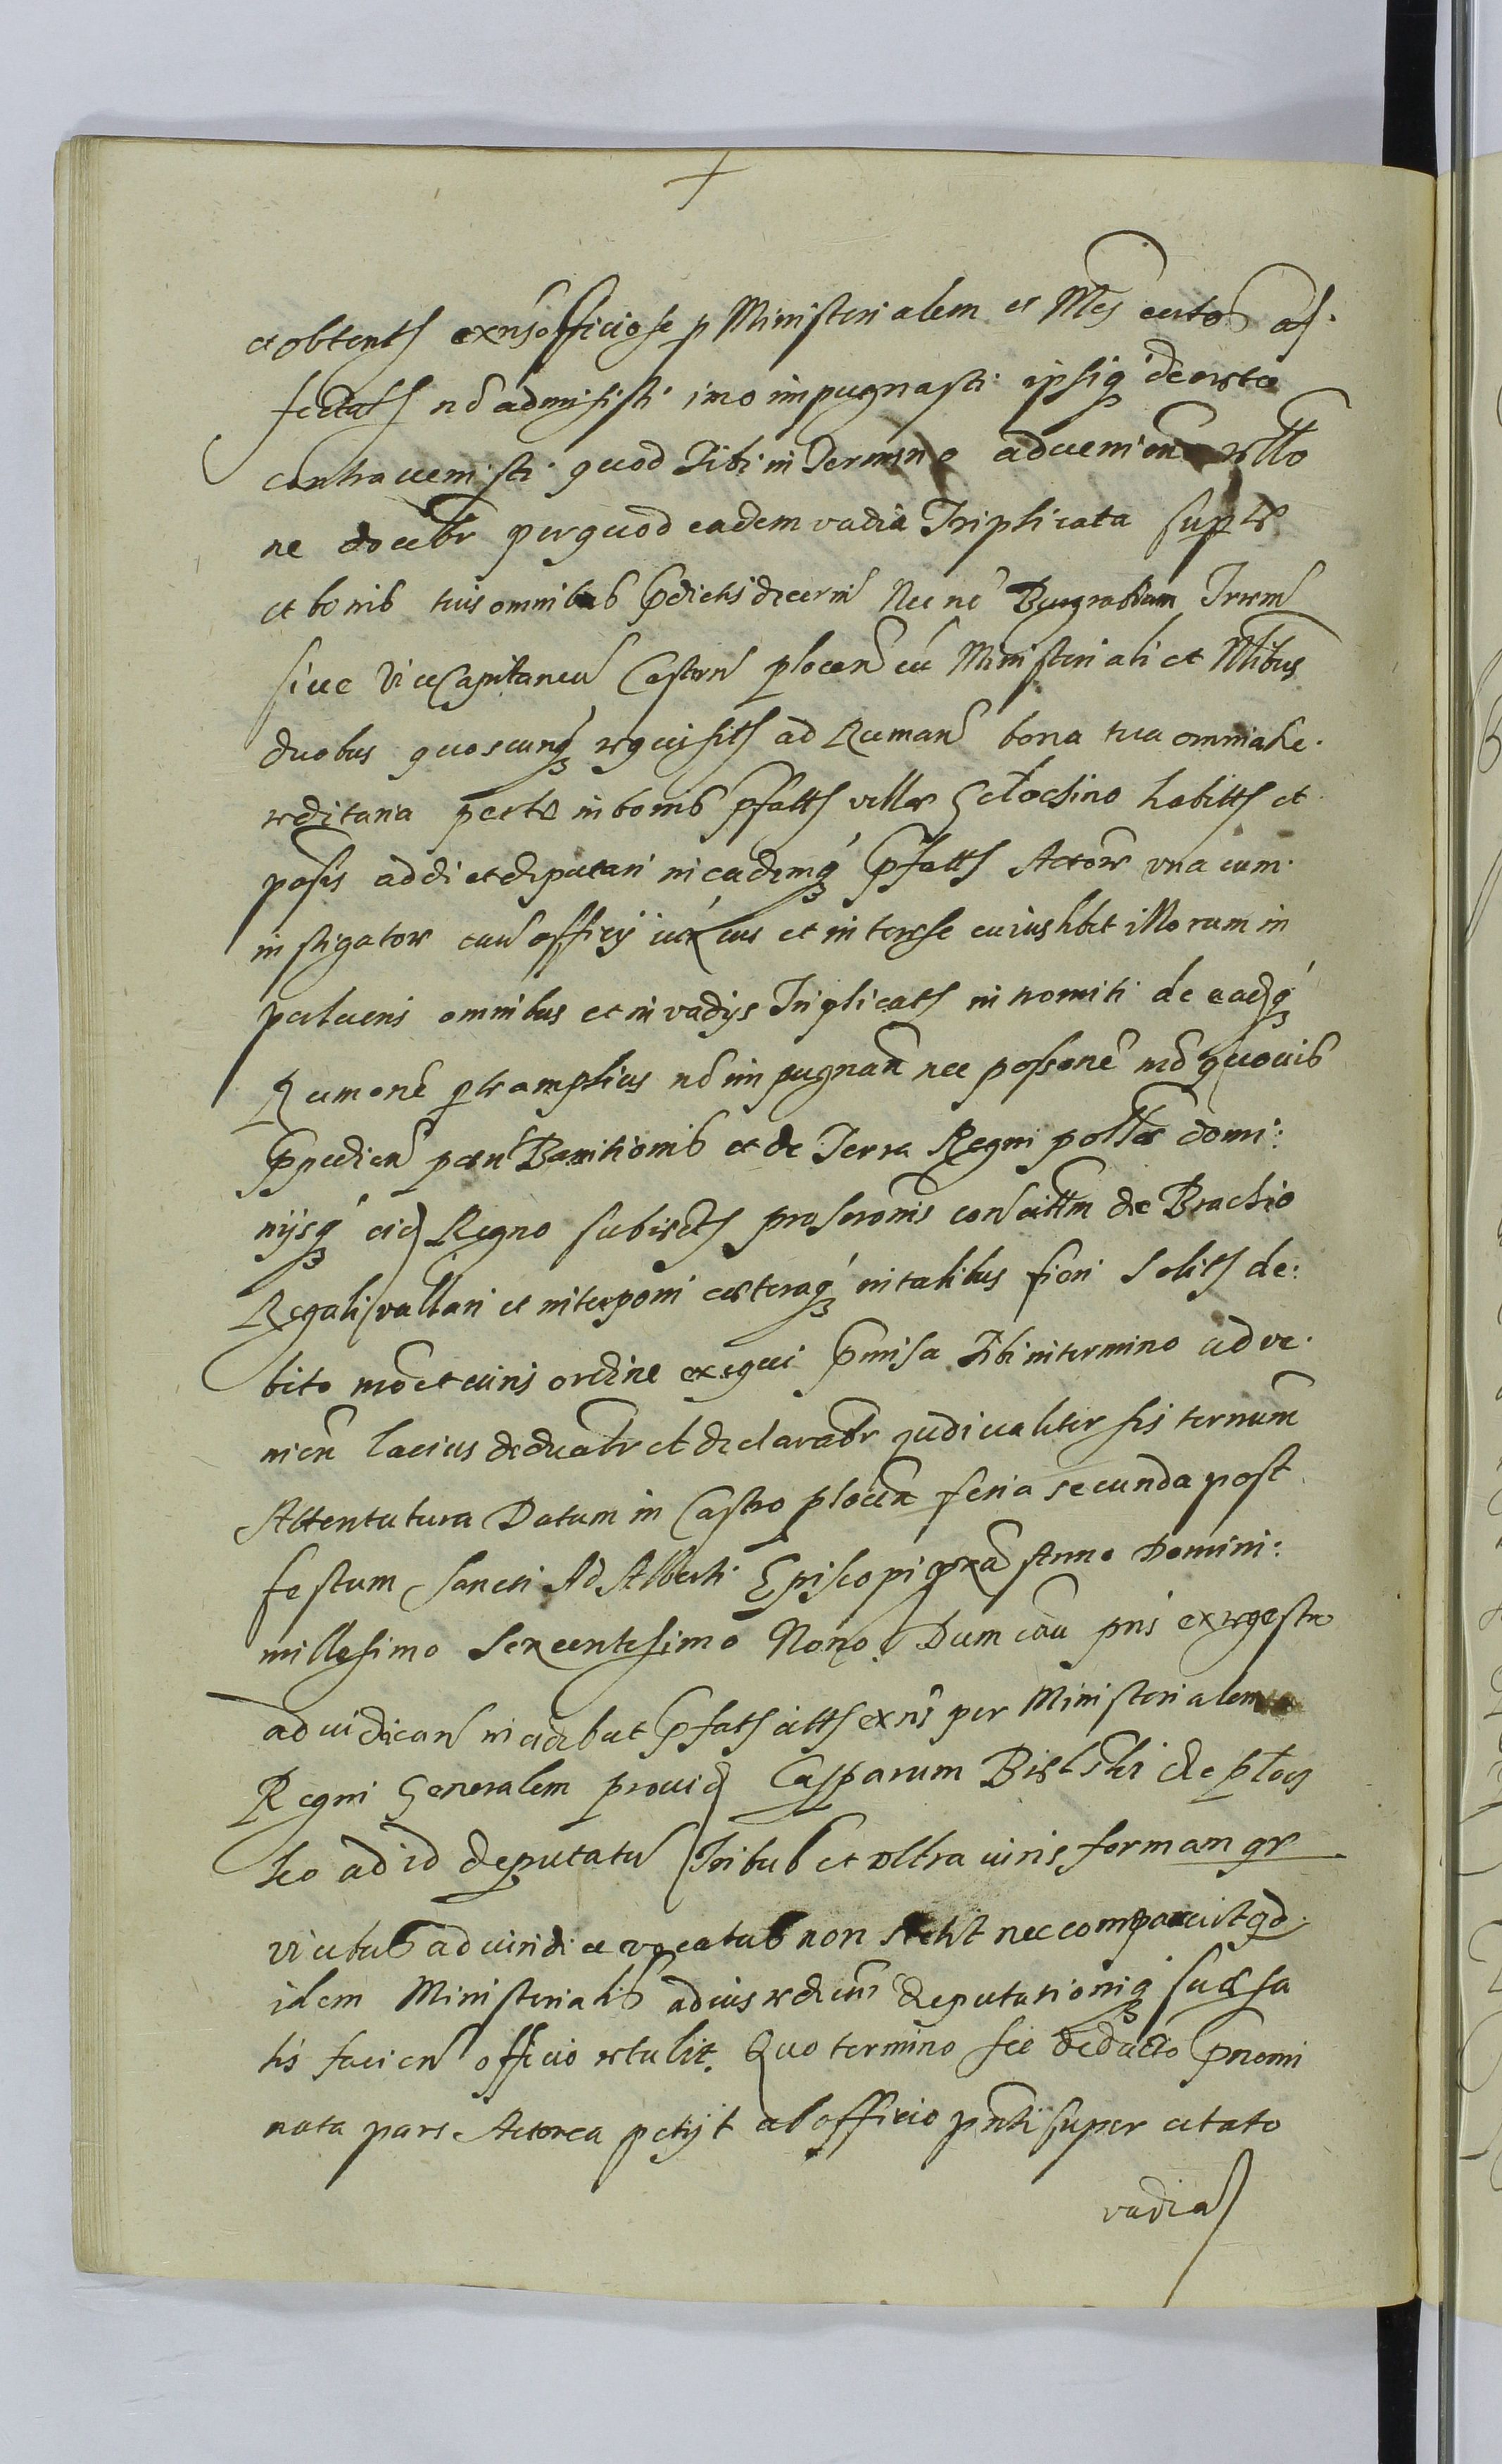 et obtent exns officiose p Ministerialem et Nles certos af.
fectat nō admisisti imo impugnasti ipsiq decreto
contravenisti quod Tibi in Termino advenien
ne docebr per quod eadem vadia Triplicata super te
et bonis tuis omnibus pdictis decerni Nec nō Burgrabium Terrm
sive ViceCapitaneū Castren plocen cū Ministeriali et Nlibus
duobus quoscunq requisit ad Ruman bona tua omnia he.
reditaria p certo in bonis pfatt villae habitt et
posses addi et deputari in eademq pfatt Actor una cum.
instigator cum officij iure eius et interesse cuiuslibet illorum in
poenis omnibus et in vadijs Triplicat intromitti de eadq
Rumone p te amplius nō impugnan nec possone mō quovis
ppedien poen Banitionis et de Terra Regni poltae domi:
nijsq eid Regno subiect proscronis consuittm de Brachio
Regali vallari et interponi caeteraq in talibus fieri solit de:
bito mō et iuris ordine exequi pmissa Tibi in termino adve.
nien lacius deducetr et declarabr judicialiter sis ternum
Attentatura Datum in Castro plocen feria secunda post
festum Sancti Adalberti Episcopi pxa Anno Domini:
millesimo Sexcentesimo Nono. Dum cau pns ex regestro
ad iudican incidebat pfat citt exns per Ministerialem
Regni Generalem provid Casparum de plocz
ko ad id deputatū Tribus et ultra iuris formam qr
vicibus ad iuridice vocatus non stetit nec comparuit qd.
idem Ministerialis ad ius redien deputationiq suae sa
tis facien officio retulit. Quo termino sic deducto pnomi
nata pars Actorea petijt ab officio pnti super citato
vadia